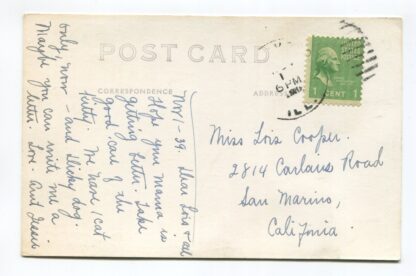 POST CARD
CORRESPONDENCE
ADDRESS
6 PM
ILL.
1 CENT 1
Nov 1 - 39. Dear Lois & all
Hope your mama is
getting better. Take
good care of the
kitty. We have 1 cat
only, now - and dog.
Maybe you can write me a
letter. Love. Aunt
Miss Lois Cooper.
2814 Carlaris Road
San Marino,
California